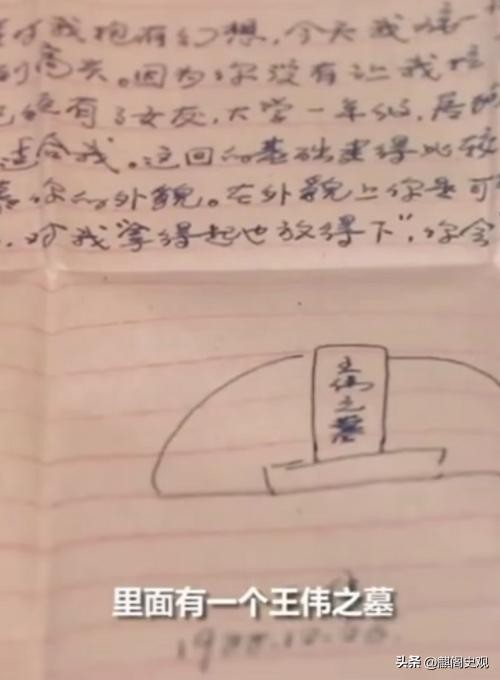 对我抱有幻想，今天我
到高兴。因为你没有让我
已经有了女友，大学一年级，
适合我。这回的基础建得比较
你的外貌。在外貌上你是可
，对我“拿得起也放得下”，你会
王伟之墓
里面有一个王伟之墓
头条 @麒阁史观